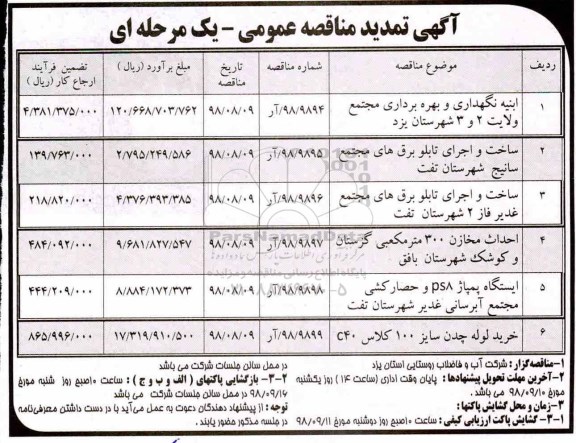 آگهی تمدید مناقصه عمومی - یک مرحله ای
ردیف موضوع مناقصه شماره مناقصه تاریخ مناقصه مبلغ برآورد (ریال) تضمین فرآیند ارجاع کار (ریال)
۱ ابنیه نگهداری و بهره برداری مجتمع ولایت ۲ و ۳ شهرستان یزد ۹۸/۹۸۹۴/آر ۹۸/۰۸/۰۹ ۱۲۰/۶۶۸/۷۰۳/۷۶۲ ۴/۳۸۱/۳۷۵/۰۰۰
۲ ساخت و اجرای تابلو برق های مجتمع سانیج شهرستان تفت ۹۸/۹۸۹۵/آر ۹۸/۰۸/۰۹ ۲/۷۹۵/۲۴۹/۵۸۶ ۱۳۹/۷۶۳/۰۰۰
۳ ساخت و اجرای تابلو برق های مجتمع غدیر فاز ۲ شهرستان تفت ۹۸/۹۸۹۶/آر ۹۸/۰۸/۰۹ ۴/۳۷۶/۳۹۳/۳۸۵ ۲۱۸/۸۲۰/۰۰۰
۴ احداث مخازن ۳۰۰ مترمکعبی گزستان و کوشک شهرستان بافق ۹۸/۹۸۹۷/آر ۹۸/۰۸/۰۹ ۹/۶۸۱/۸۲۷/۵۴۷ ۴۸۴/۰۹۲/۰۰۰
۵ ایستگاه پمپاژ ps۸ و حصارکشی مجتمع آبرسانی غدیر شهرستان تفت ۹۸/۹۸۹۸/آر ۹۸/۰۸/۰۹ ۸/۸۸۴/۱۷۲/۳۷۳ ۴۴۴/۲۰۹/۰۰۰
۶ خرید لوله چدن سایز ۱۰۰ کلاس c۴۰ ۹۸/۹۸۹۹/آر ۹۸/۰۸/۰۹ ۱۷/۳۱۹/۹۱۰/۵۰۰ ۸۶۵/۹۹۶/۰۰۰
۱-مناقصه‌گزار : شرکت آب و فاضلاب روستایی استان یزد
۲-آخرین مهلت تحویل پیشنهادها : پایان وقت اداری (ساعت ۱۴ ) روز یکشنبه
مورخ ۹۸/۰۹/۱۰ می باشد.
۳-زمان و محل گشایش پاکتها :
۳-۱- گشایش پاکت ارزیابی کیفی : ساعت ۱۰صبح روز دوشنبه مورخ ۹۸/۰۹/۱۱
در محل سالن جلسات شرکت می باشد
۳-۲- بازگشایی پاکتهای ( الف و ب و ج ) : ساعت ۱۰صبح روز شنبه مورخ
۹۸/۰۹/۱۶ در محل سالن جلسات شرکت می باشد
توجه : از پیشنهاد دهندگان دعوت به عمل می‌آید با در دست داشتن معرفی‌نامه
در جلسه مذکور حضور یابند .
ParsNamadData
پایگاه اطلاع رسانی مناقصه و مزایده